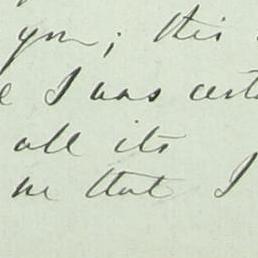 you; this
I was certa
all its
me that I